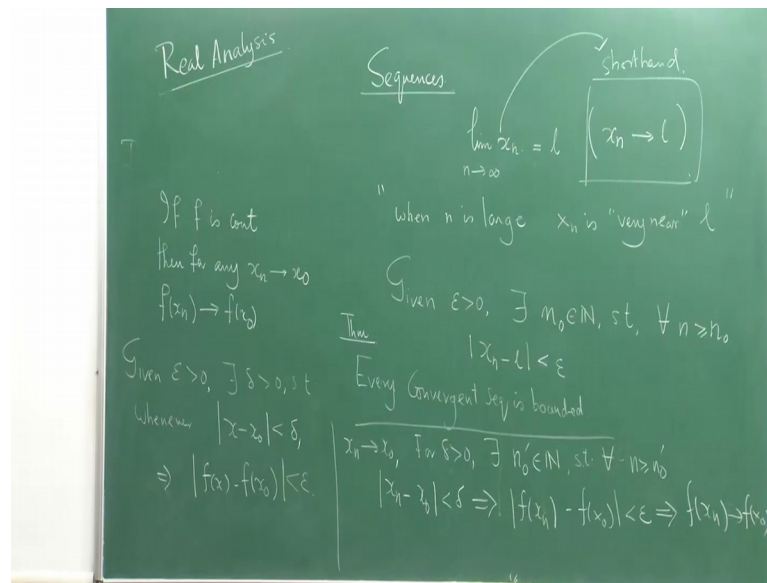 Real Analysis
If f is cont
then for any xₙ → x₀
f(xₙ) → f(x₀)
Given ε>0, ∃ δ>0, s t
whenever |x-x₀| < δ,
⇒ |f(x) - f(x₀)| < ε.
Sequences
shorthand.
lim xₙ = l (xₙ → l)
n→∞
"when n is large xₙ is "very near" l"
Given ε>0, ∃ n₀∈ℕ, s t, ∀ n ≥ n₀
|xₙ-l| < ε
Thm
Every Convergent seq is bounded
xₙ → x₀, For δ>0, ∃ n₀'∈ℕ, s.t. ∀ n ≥ n₀'
|xₙ - x₀| < δ ⇒ |f(xₙ) - f(x₀)| < ε ⇒ f(xₙ) → f(x₀)